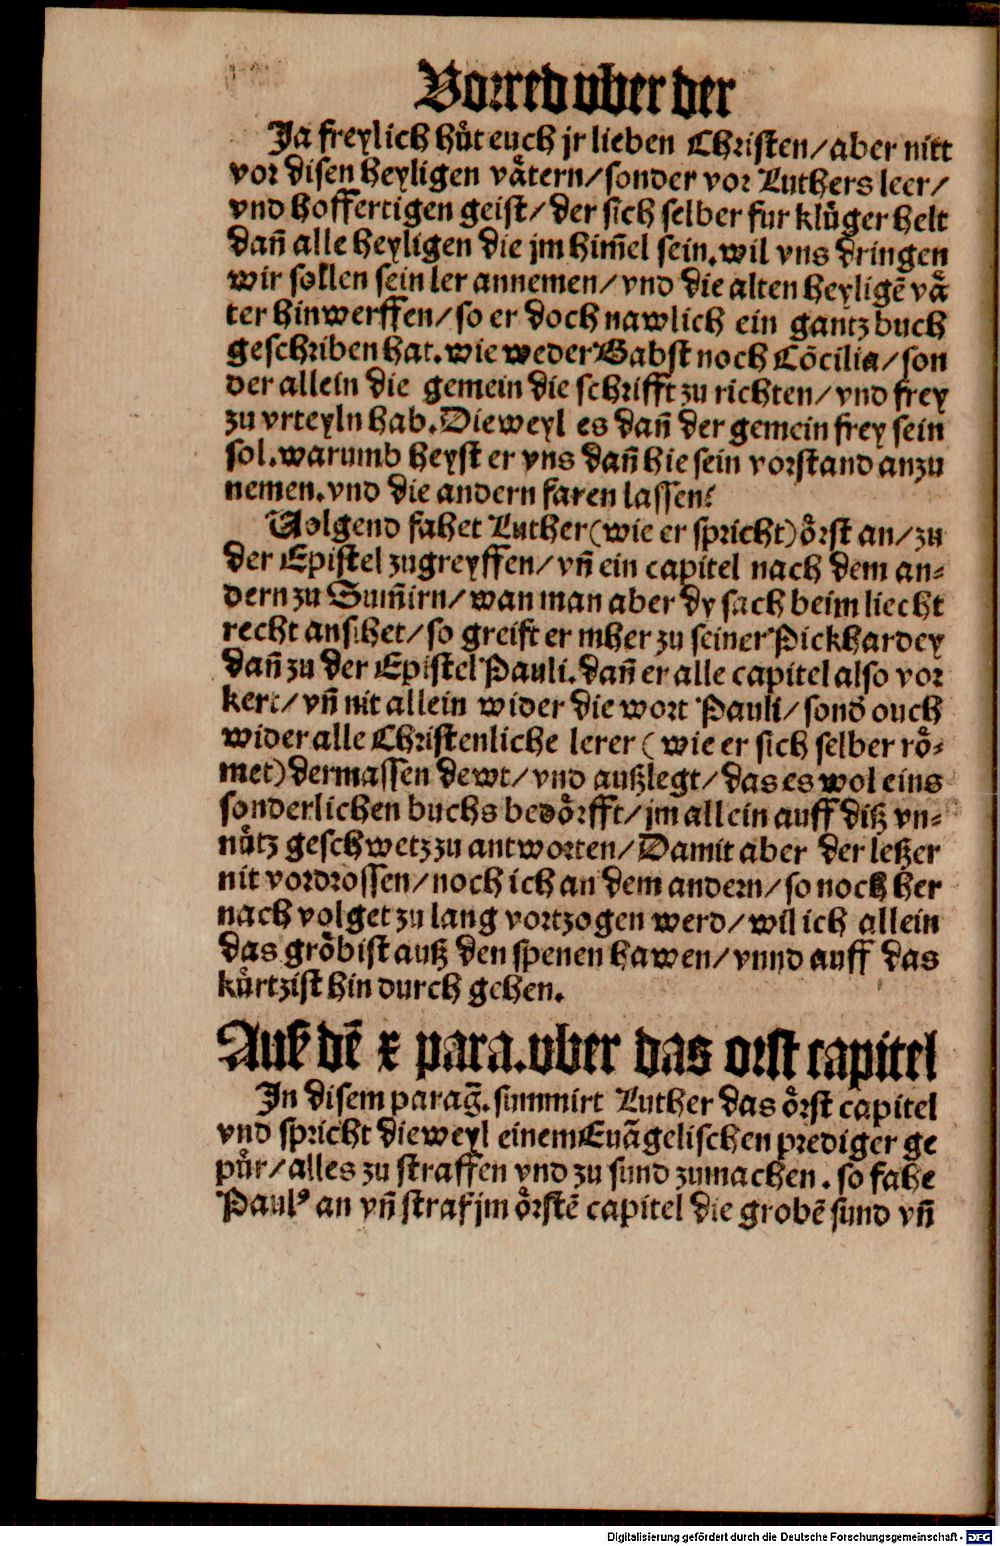 Vorred vber der
Ja freylich hüt euch jr lieben Christen/aber nitt
vor disen heyligen vätern/sonder vor Luthers leer/
vnd hoffertigen geist/der sich selber fur klüger helt
dañ alle heyligen die jm him̃el sein.wil vns dringen
wir sollen sein ler annemen/vnd die alten heyligē vä
ter hinwerffen/so er doch nawlich ein gantz buch
geschriben hat.wie weder Babst noch Cōcilia/son
der allein die gemein die schrifft zu richten/vnd frey
zu vrteyln hab.Die weyl es dañ der gemein frey sein
sol.warumb heyst er vns dañ hie sein vorstand anzu
nemen.vnd die andern faren lassen?
Volgend fahet Luther(wie er spricht)örst an/zu
der Epistel zugreyffen/vñ ein capitel nach dem an-
dern zu Sum̃irn/wan man aber dy sach beim liecht
recht ansihet/so greift er mher zu seiner Pickhardey
dañ zu der Epistel Pauli.dañ er alle capitel also vor
kert/vñ nit allein wider die wort Pauli/sond̄ ouch
wider alle Christenliche lerer ( wie er sich selber rö-
met)dermassen dewt/vnd außlegt/das es wol eins
sonderlichen buchs bedörfft/jm allein auff diß vn-
nütz geschwetz zu antworten/Damit aber der leßer
nit vordrossen/noch ich an dem andern/so noch her
nach volget zu lang vortzogen werd/wil ich allein
das gröbist auß den spenen hawen/vnnd auff das
kürtzist hin durch gehen.
Auß dē x para.vber das orst capitel
In disem parag̃.summirt Luther das örst capitel
vnd spricht dieweyl einem Euāgelischen prediger ge
pür/alles zu straffen vnd zu sund zumachen.so fahe
Paulꝰ an vñ straf jm örstē capitel die grobē sund vñ
Digitalisierung gefördert durch die Deutsche Forschungsgemeinschaft - DFG